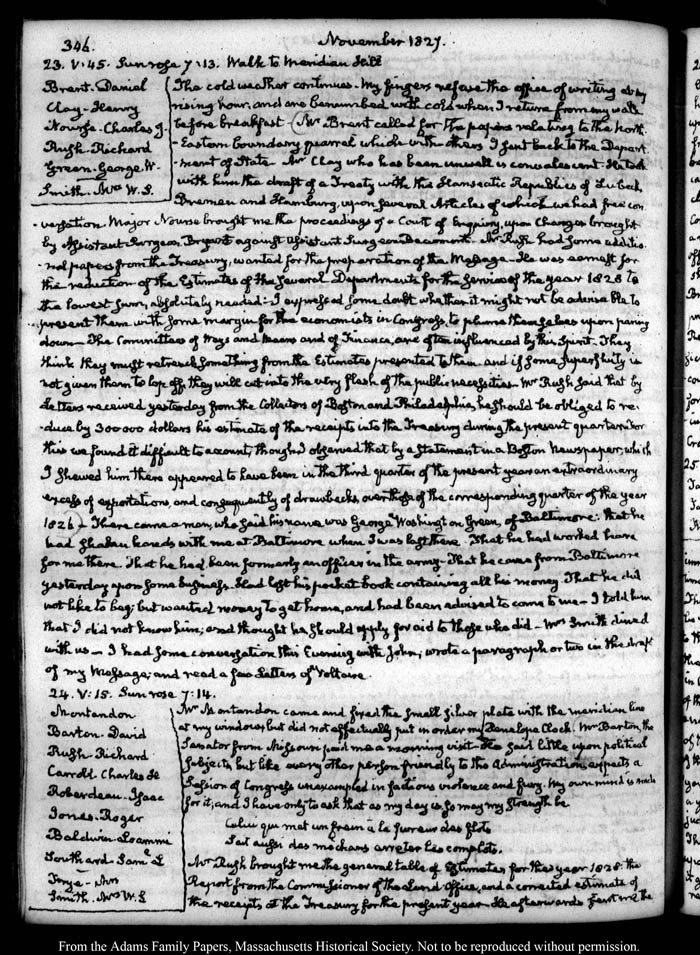 346.
November 1827.
23. V:45. Sun rose 7:13. Walk to Meridian Hill
Brent. Daniel
Clay. Henry
Nourse. Charles J.
Rush. Richard
Green. George. W.
Smith. Mrs W. S.
The cold weather continues. My fingers refuse the office of writing at my
rising hour, and are benumbed with cold when I return from my walk
before breakfast. Mr Brent called for the papers relating to the North.
-Eastern boundary quarrel which with others I sent back to the Depart.
-ment of State. Mr Clay who has been unwell is convalescent. He took
with him the draft of a Treaty with the Hanseatic Republics of Lubeck,
Bremen and Hamburg, upon several Articles of which we had free con
-versation. Major Nourse brought me the proceedings of a Court of Enquiry, upon Charges brought
by Assistant Surgeon Bryant against assistant Surgeon Beaumont. Mr Rush had some additio.
-nal papers from the Treasury, wanted for the preparation of the Message. He was earnest for
the reduction of the Estimates of the several Departments for the service of the year 1828 to
the lowest sum, absolutely needed. I expressed some doubt whether it might not be adviseable to
present them with some margin for the economists in Congress, to plume themselves upon paring
down. The Committees of Ways and means and of Finance, are often influenced by this spirit. They
think they must retrench something from the Estimates presented to them and if some superfluity is
not given them to lop off, they will cut into the very flesh of the public necessities. Mr Rush said that by
Letters received yesterday from the Collectors of Boston and Philadelphia, he should be obliged to re.
-duce by 300 000 dollars his estimate of the receipts into the Treasury during the present quarter. For
this we found it difficult to account, though I observed that by a statement in a Boston Newspaper, which
I shewed him there appeared to have been in the third quarter of the present year an extraordinary
excess of exportations, and consequently of drawbacks, over those of the corresponding quarter of the year
1826. There came a man, who said his name was George Washington Green, of Baltimore: that he
had shaken hands with me at Baltimore when I was last there. That he had worked
for me there. That he had been formerly an officer in the army. That he came from Baltimore
yesterday upon some business. Had lost his pocket book containing all his money. That he did
not like to beg; but wanted money to get home, and had been advised to come to me. I told him
that I did not know him; and thought he should apply for aid to those who did. Mrs Smith dined
with us. I had some conversation this Evening with John; wrote a paragraph or two in the draft
of my Message; and read a few Letters of Voltaire.
24. V:15. Sun rose 7:14.
Montandon
Barton. David
Rush. Richard
Carroll Charles
Roberdeau. Isaac
Jones. Roger
Baldwin. Loammi
Southard. Saml L
Smith. Mrs W. S
Mr Montandon came and fixed the small silver plate with the meridian line
at my window; but did not effectually put in order my Penelope Clock. Mr Barton, the
Senator from Missouri paid me a morning visit. He said little upon political
subjects, but like every other person friendly to the Administration, expects a
Session of Congress unexampled in factious violence and fury. My own mind is made
for it; and I have only to ask that as my day is so may my strength be
Celui qui met un frein à la fureur des flots
Sait aussi des mechans arreter les complots.
Mr Rush brought me the general table of Estimates for the year 1828. the
Report from the Commissioner of the Land Office, and a corrected estimate of
the receipts at the Treasury for the present year. He afterwards sent me the
From the Adams Family Papers, Massachusetts Historical Society. Not to be reproduced without permission.